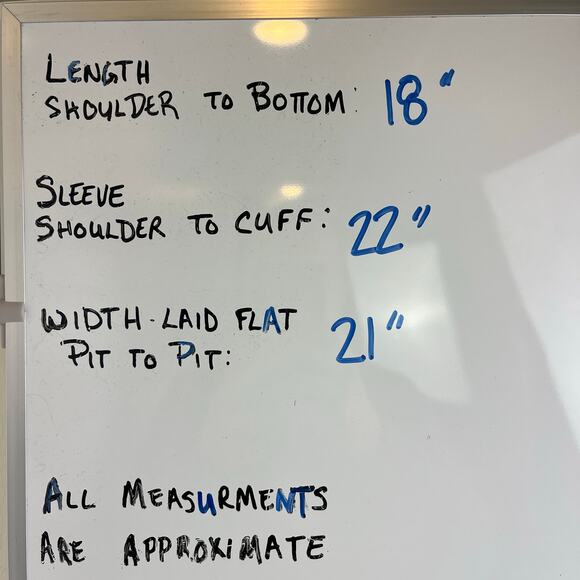 LENGTH
SHOULDER TO BOTTOM: 18"
SLEEVE
SHOULDER TO CUFF: 22"
WIDTH-LAID FLAT
PIT TO PIT: 21"
ALL MEASURMENTS
ARE APPROXIMATE